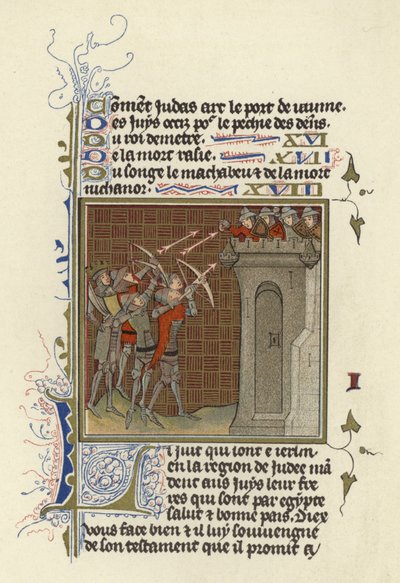 Coment Judas art le port de iaume.
Des Juys occiz por le pechie des dens.
Du roi demetre. XVI
De la mort rasie. XVII
Du songe le machabeu & de la mort
nichanor. XVIII
I
Li Juif qui sont e ierlm
en la region de Judee man
dent aus Juys leur fre
res qui sont par egypte
salut & bonne pais. Diex
vous face bien & il luy souviengne
de son testament que il promit a